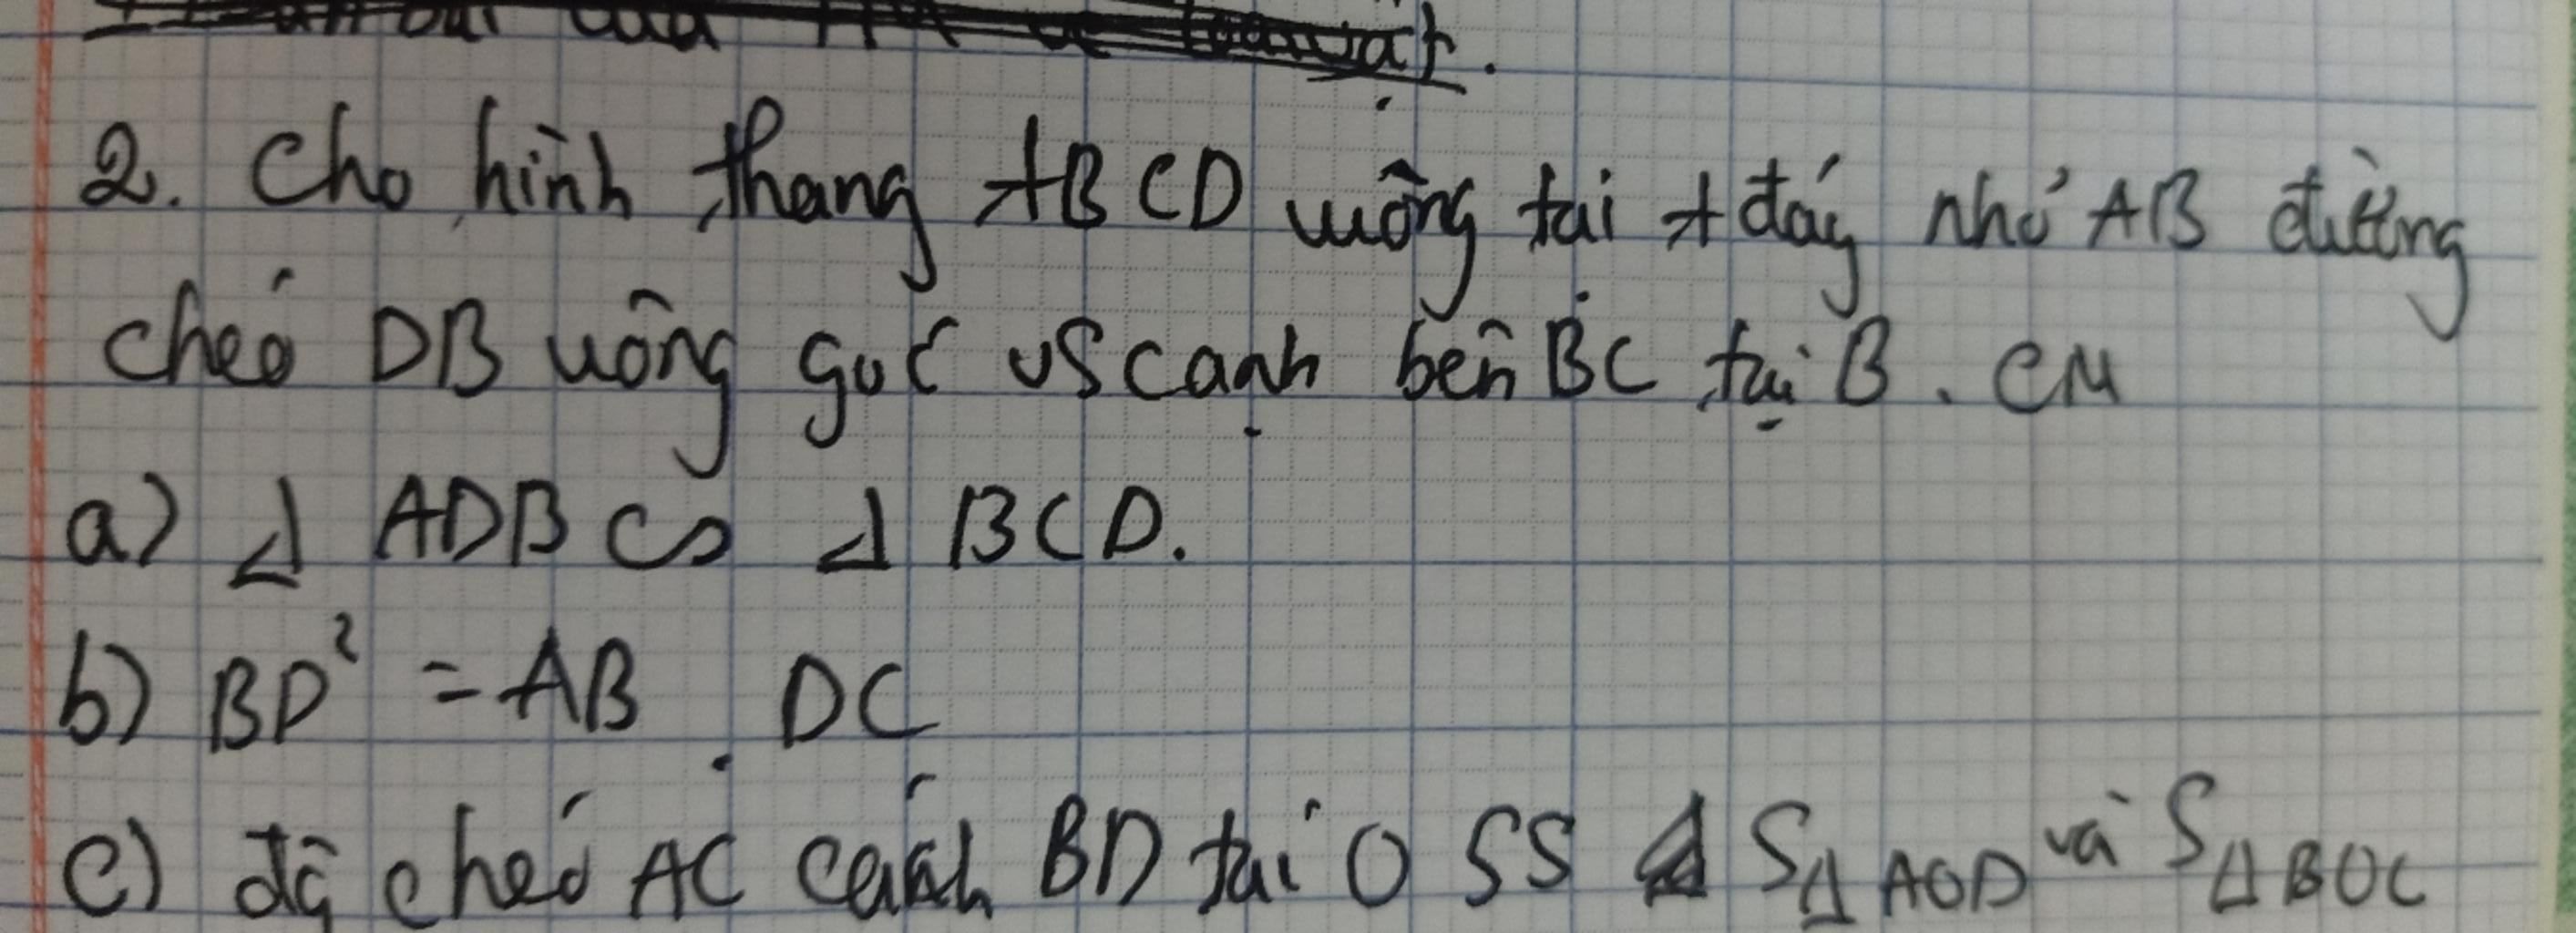 2. Cho hình thang ABCD vuông tại A đáy nhỏ AB đường
chéo DB vuông góc vs cạnh bên BC tại B. CM
a) Δ ADB ∽ Δ BCD.
b) BD² = AB . DC
c) đg chéo AC cắt BD tại O SS S Δ AOD và S Δ BOC